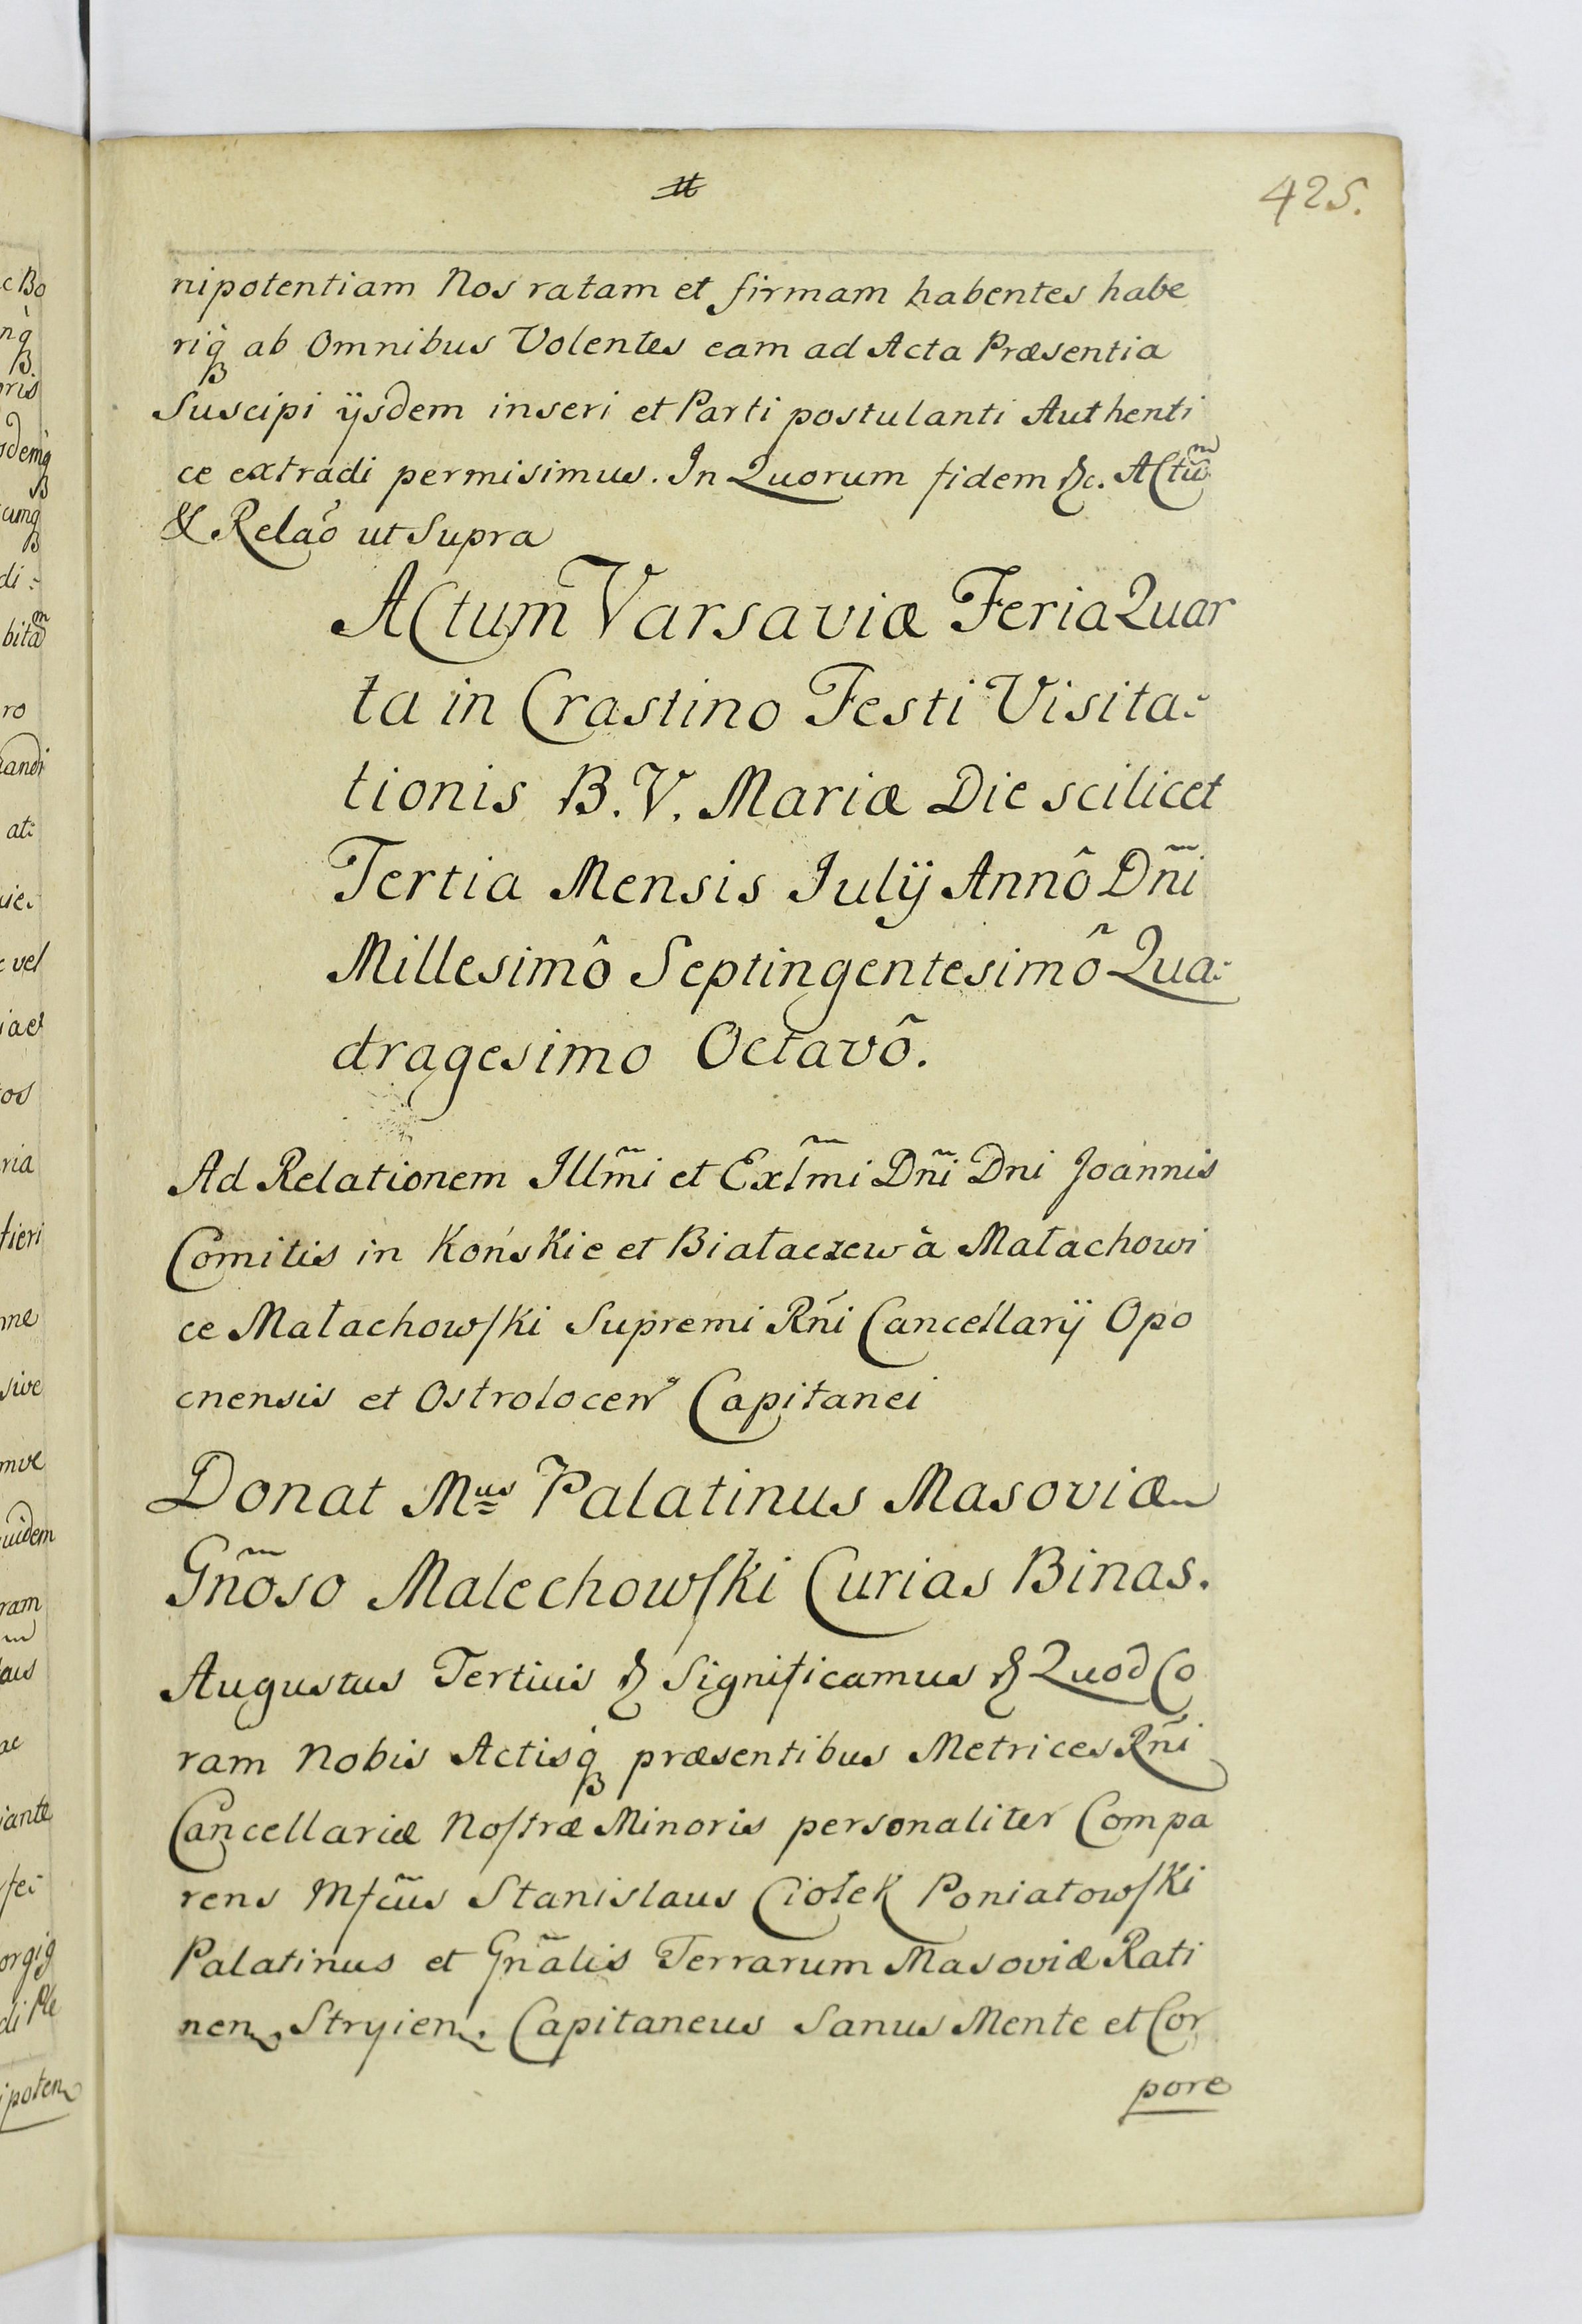 425.
nipotentiam Nos ratam et firmam habentes habe
riq₃ ab Omnibus Volentes eam ad Acta Præsentia
Suscipi ijsdem inseri et Parti postulanti Authenti
ce extradi permisimus. In Quorum fidem &c. Actũm
& Relaõ ut Supra
Actum Varsaviæ Feria Quar
ta in Crastino Festi Visita:
tionis B. V. Mariæ Die scilicet
Tertia Mensis Julij Annô Dñi
Millesimô Septingentesimô Qua:
dragesimo Octavô.
Ad Relationem Illm̃i et Exlm̃i Dñi Dni Joannis
Comitis in Końskie et Białaczew à Małachowi
ce Małachowski Supremi Rñi Cancellarij Opo
cnensis et Ostrolocen Capitanei
Donat Mus Palatinus Masoviæ
Gñoso Malechowski Curias Binas.
Augustus Tertius & Significamus & Quod Co
ram Nobis Actisq₃ præsentibus Metrices Rñi
Cancellariæ Nostræ Minoris personaliter Compa
rens Mfcũs Stanislaus Ciołek Poniatowski
Palatinus et Gñalis Terrarum Masoviæ Rati
nen. Stryien. Capitaneus Sanus Mente et Cor
pore